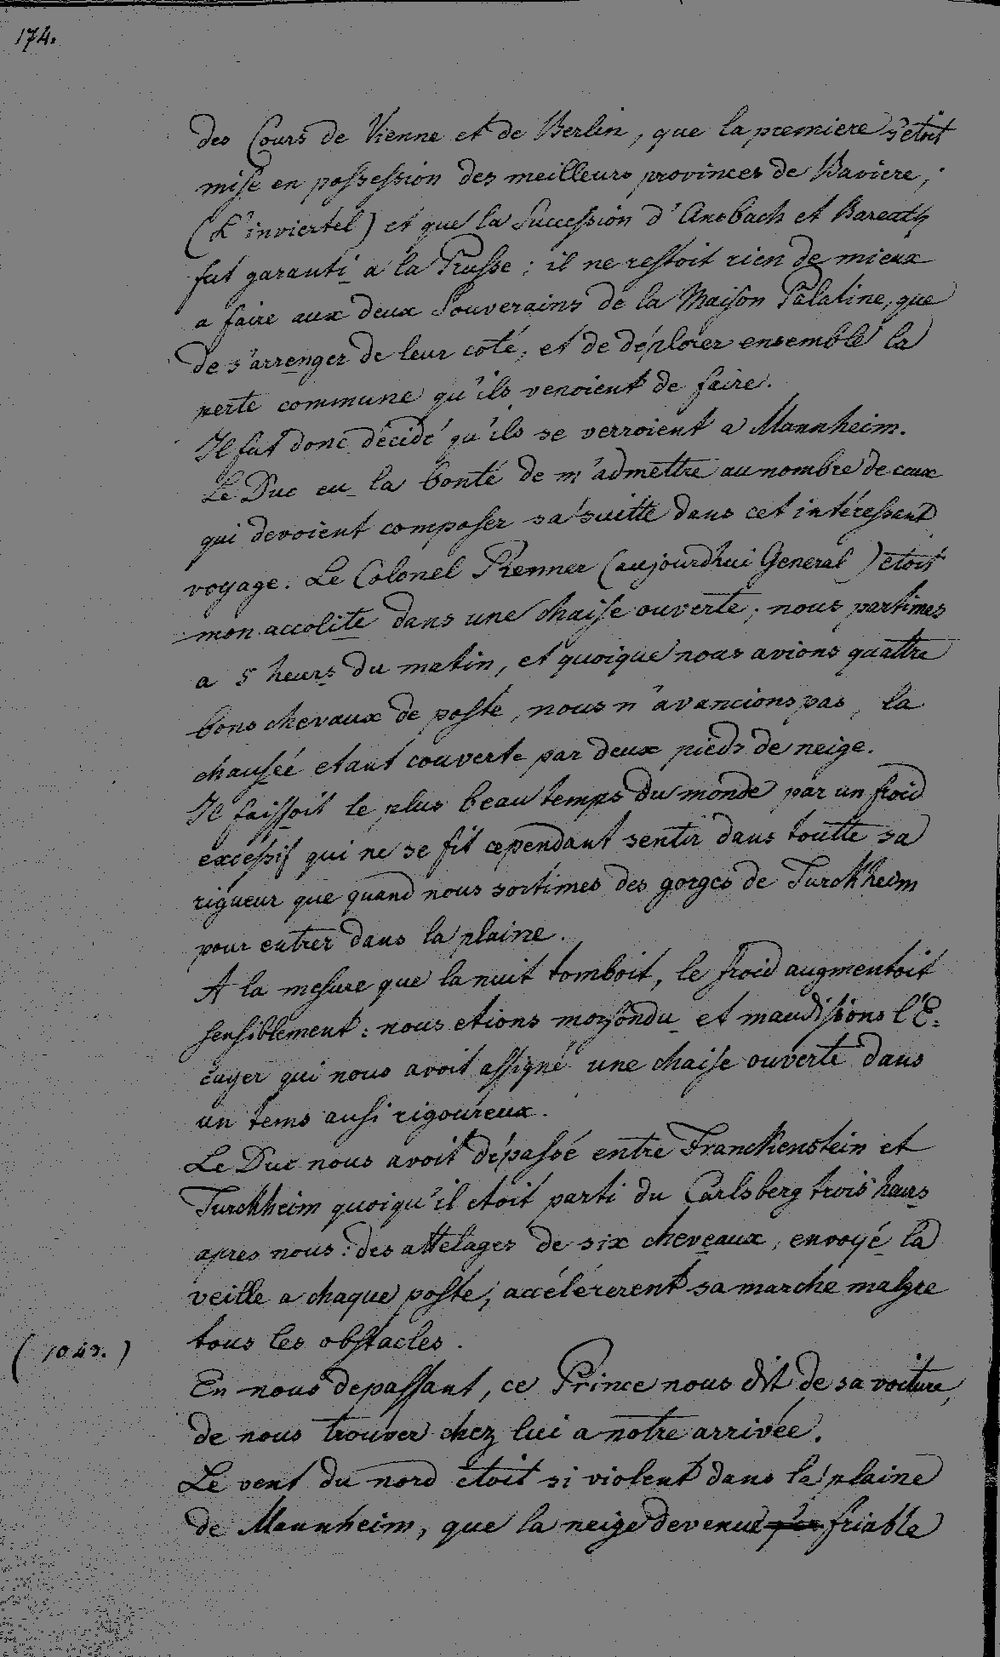 174.
des Cours de Vienne et de Berlin, que la premiere s'etoit
mise en possession des meilleurs provinces de Baviere,
(L'inviertel) et que la Succession d'Ansbach et Bareath
fut garanti a la Prusse; il ne restoit rien de mieux
a faire aux deux Souverains de la Maison Palatine, que
de s'arrenger de leur coté, et de déplorer ensemble la
perte commune qu'ils venoient de faire.
Il fut donc décidé qu'ils se verroient a Mannheim.
Le Duc eu la bonté de m'admettre au nombre de ceux
qui devoient composer sa suitte dans cet intéressent
voyage. Le Colonel Renner (aujourdhui General) etoit
mon accolite dans une chaise ouverte; nous partimes
a 5 heurs du matin, et quoique nous avions quattre
bons chevaux de poste, nous n'avancions pas, la
chauseé etant couverte par deux pieds de neige.
Il faissoit le plus beau temps du monde par un froid
excessif qui ne se fit cependant sentir dans toutte sa
rigueur que quand nous sortimes des gorges de Turckheim
pour entrer dans la plaine.
A la mesure que la nuit tomboit, le froid augmentoit
sensiblement: nous etions morfondu et maudisions l'E=
cuyer qui nous avoit assigné une chaise ouverte dans
un tems ausi rigoureux.
Le Duc nous avoit dépassé entre Franckenstein et
Turckheim quoiqu'il etoit parti du Carlsberg trois heurs
apres nous: des attelages de six cheveaux, envoyé la
veille a chaque poste, accélérerent sa marche malgre
tous les obstacles.
(1043.)
En nous depassant, ce Prince nous dit de sa voiture,
de nous trouver chez lui a notre arrivée.
Le vent du nord etoit si violent dans la plaine
de Mannheim, que la neige devenue friable